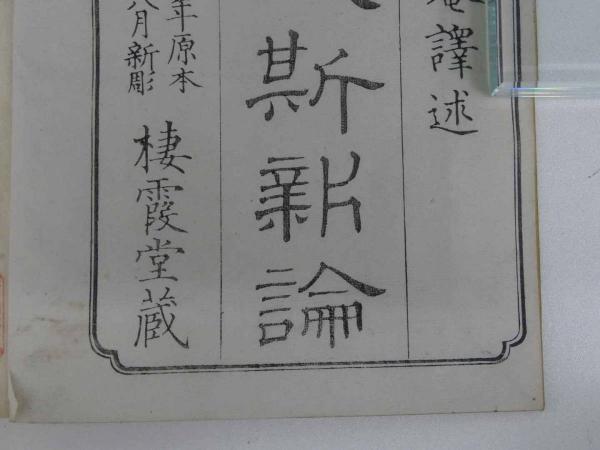 譯述
斯新論
年原本
八月新彫
棲霞堂蔵